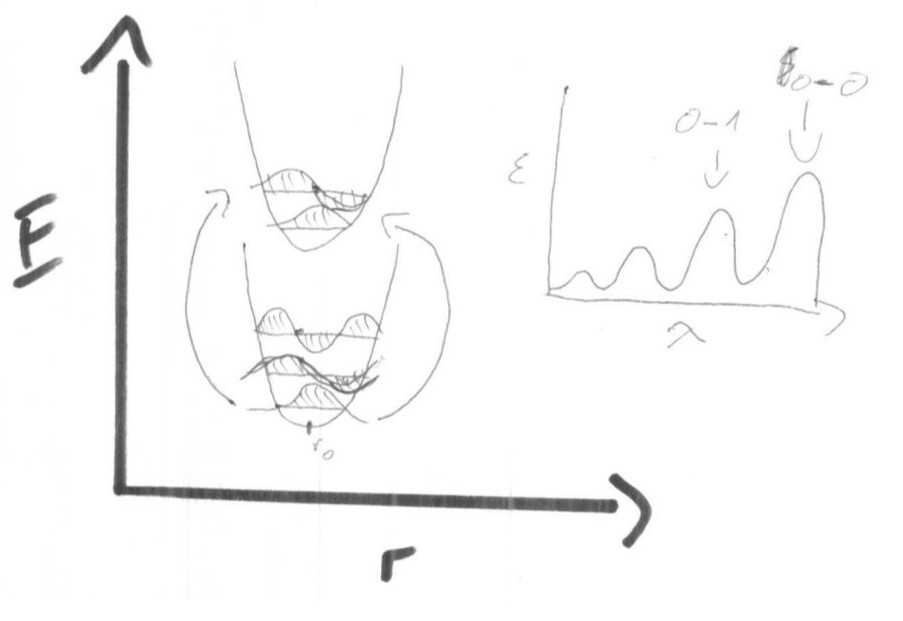 E
r
r₀
ε
λ
0-1
0-0